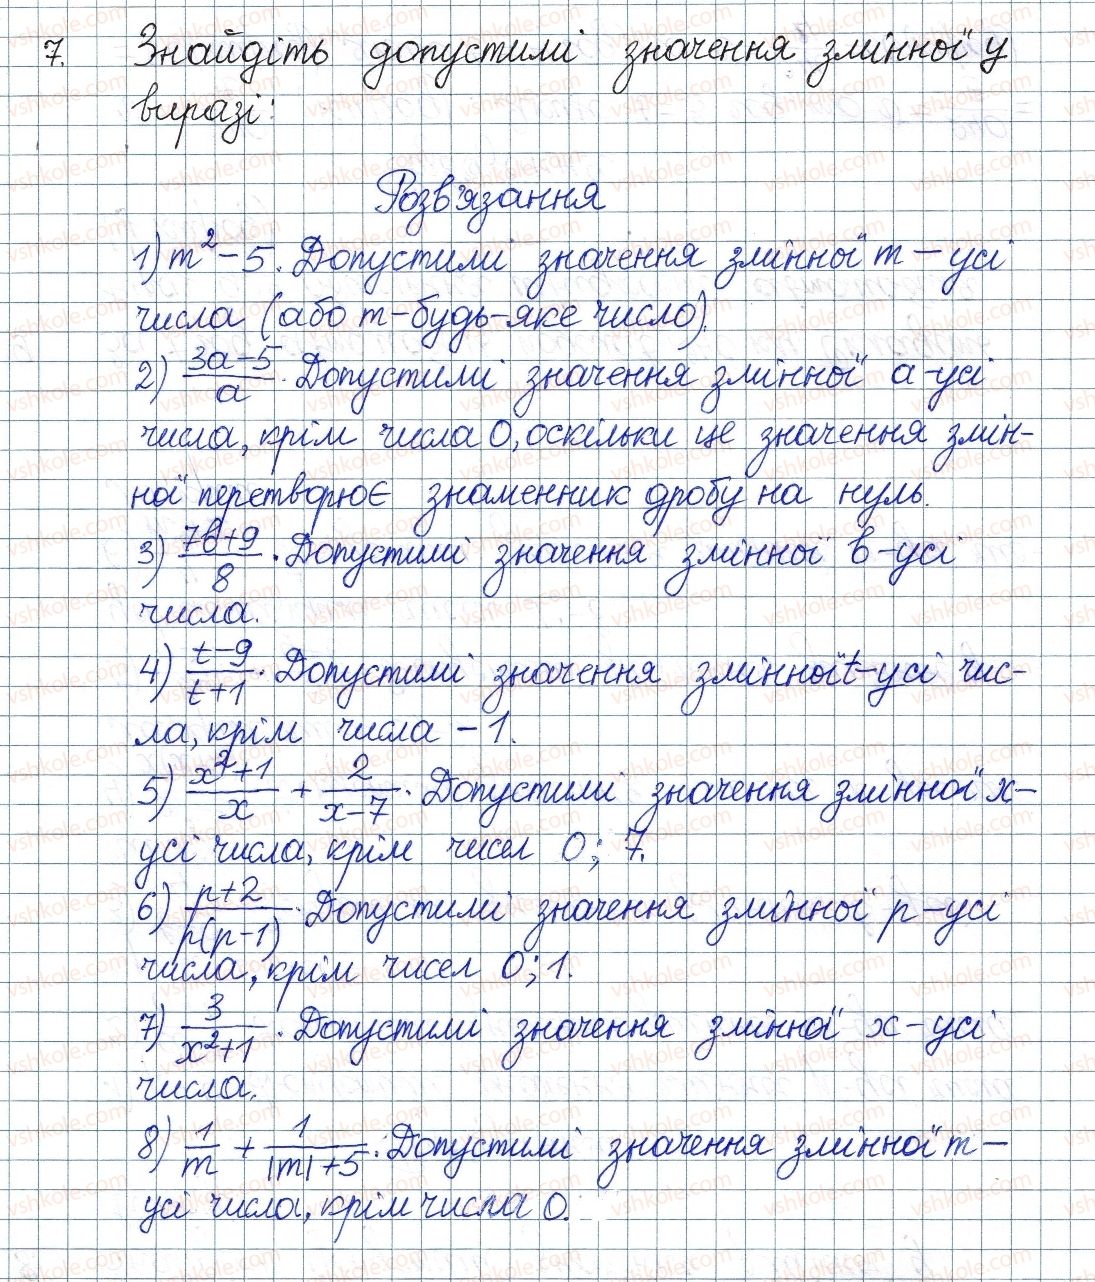 7. Знайдіть допустимі значення змінної у
виразі:
Розв'язання
1) m² - 5. Допустимі значення змінної m - усі
числа (або m - будь-яке число).
2) (3a-5)/a. Допустимі значення змінної a - усі
числа, крім числа 0, оскільки це значення змін-
ної перетворює знаменник дробу на нуль.
3) (7b+9)/8. Допустимі значення змінної b - усі
числа.
4) (t-9)/(t+1). Допустимі значення змінної t - усі чис-
ла, крім числа -1.
5) (x²+1)/x + 2/(x-7). Допустимі значення змінної x -
усі числа, крім чисел 0; 7.
6) (p+2)/(p(p-1)). Допустимі значення змінної p - усі
числа, крім чисел 0; 1.
7) 3/(x²+1). Допустимі значення змінної x - усі
числа.
8) 1/m + 1/(|m|+5). Допустимі значення змінної m -
усі числа, крім числа 0.